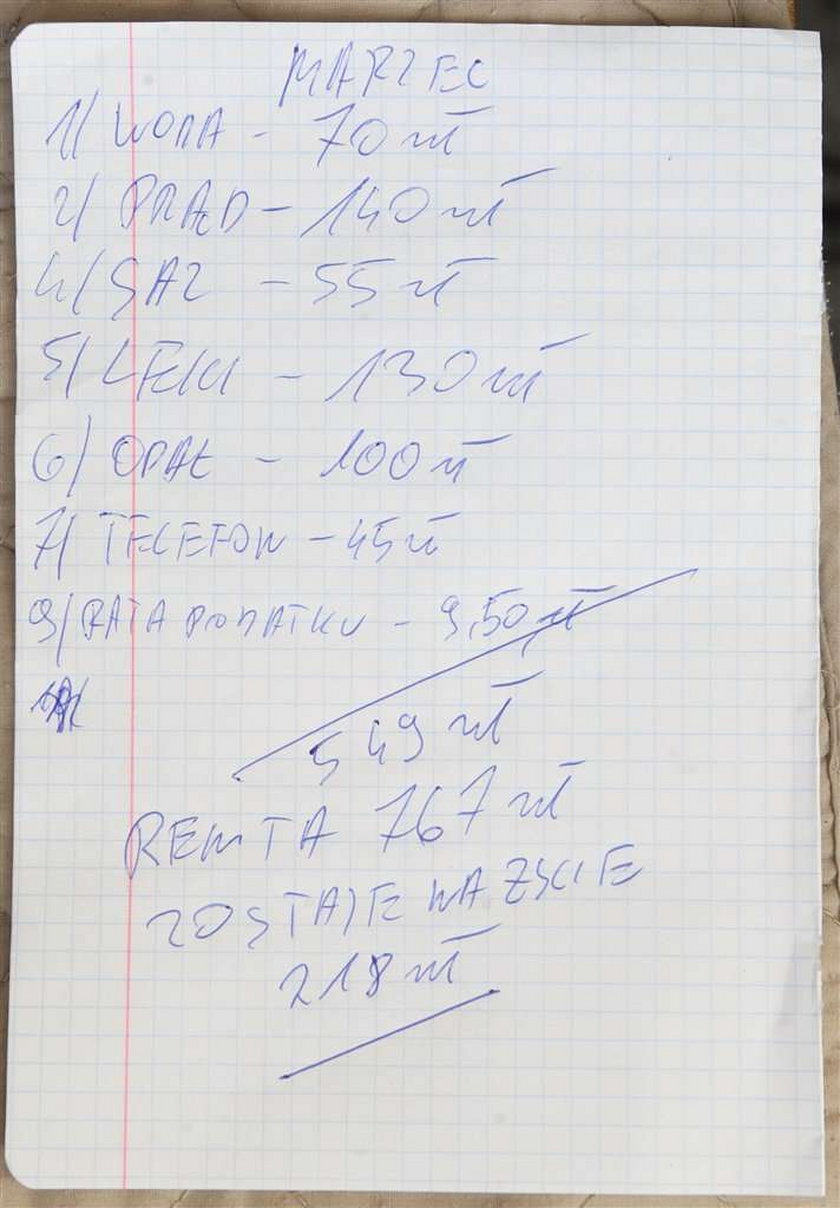 MARZEC
1/ WODA - 70 zł
2/ PRĄD - 140 zł
4/ GAZ - 55 zł
5/ LEKI - 130 zł
6/ OPAŁ - 100 zł
7/ TELEFON - 45 zł
9/ RATA PODATKU - 9,50 zł
549 zł
RENTA 767 zł
ZOSTAJE NA ŻYCIE
218 zł